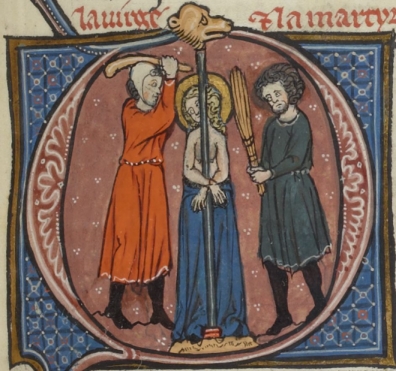 la uirge ⁊ la martyr